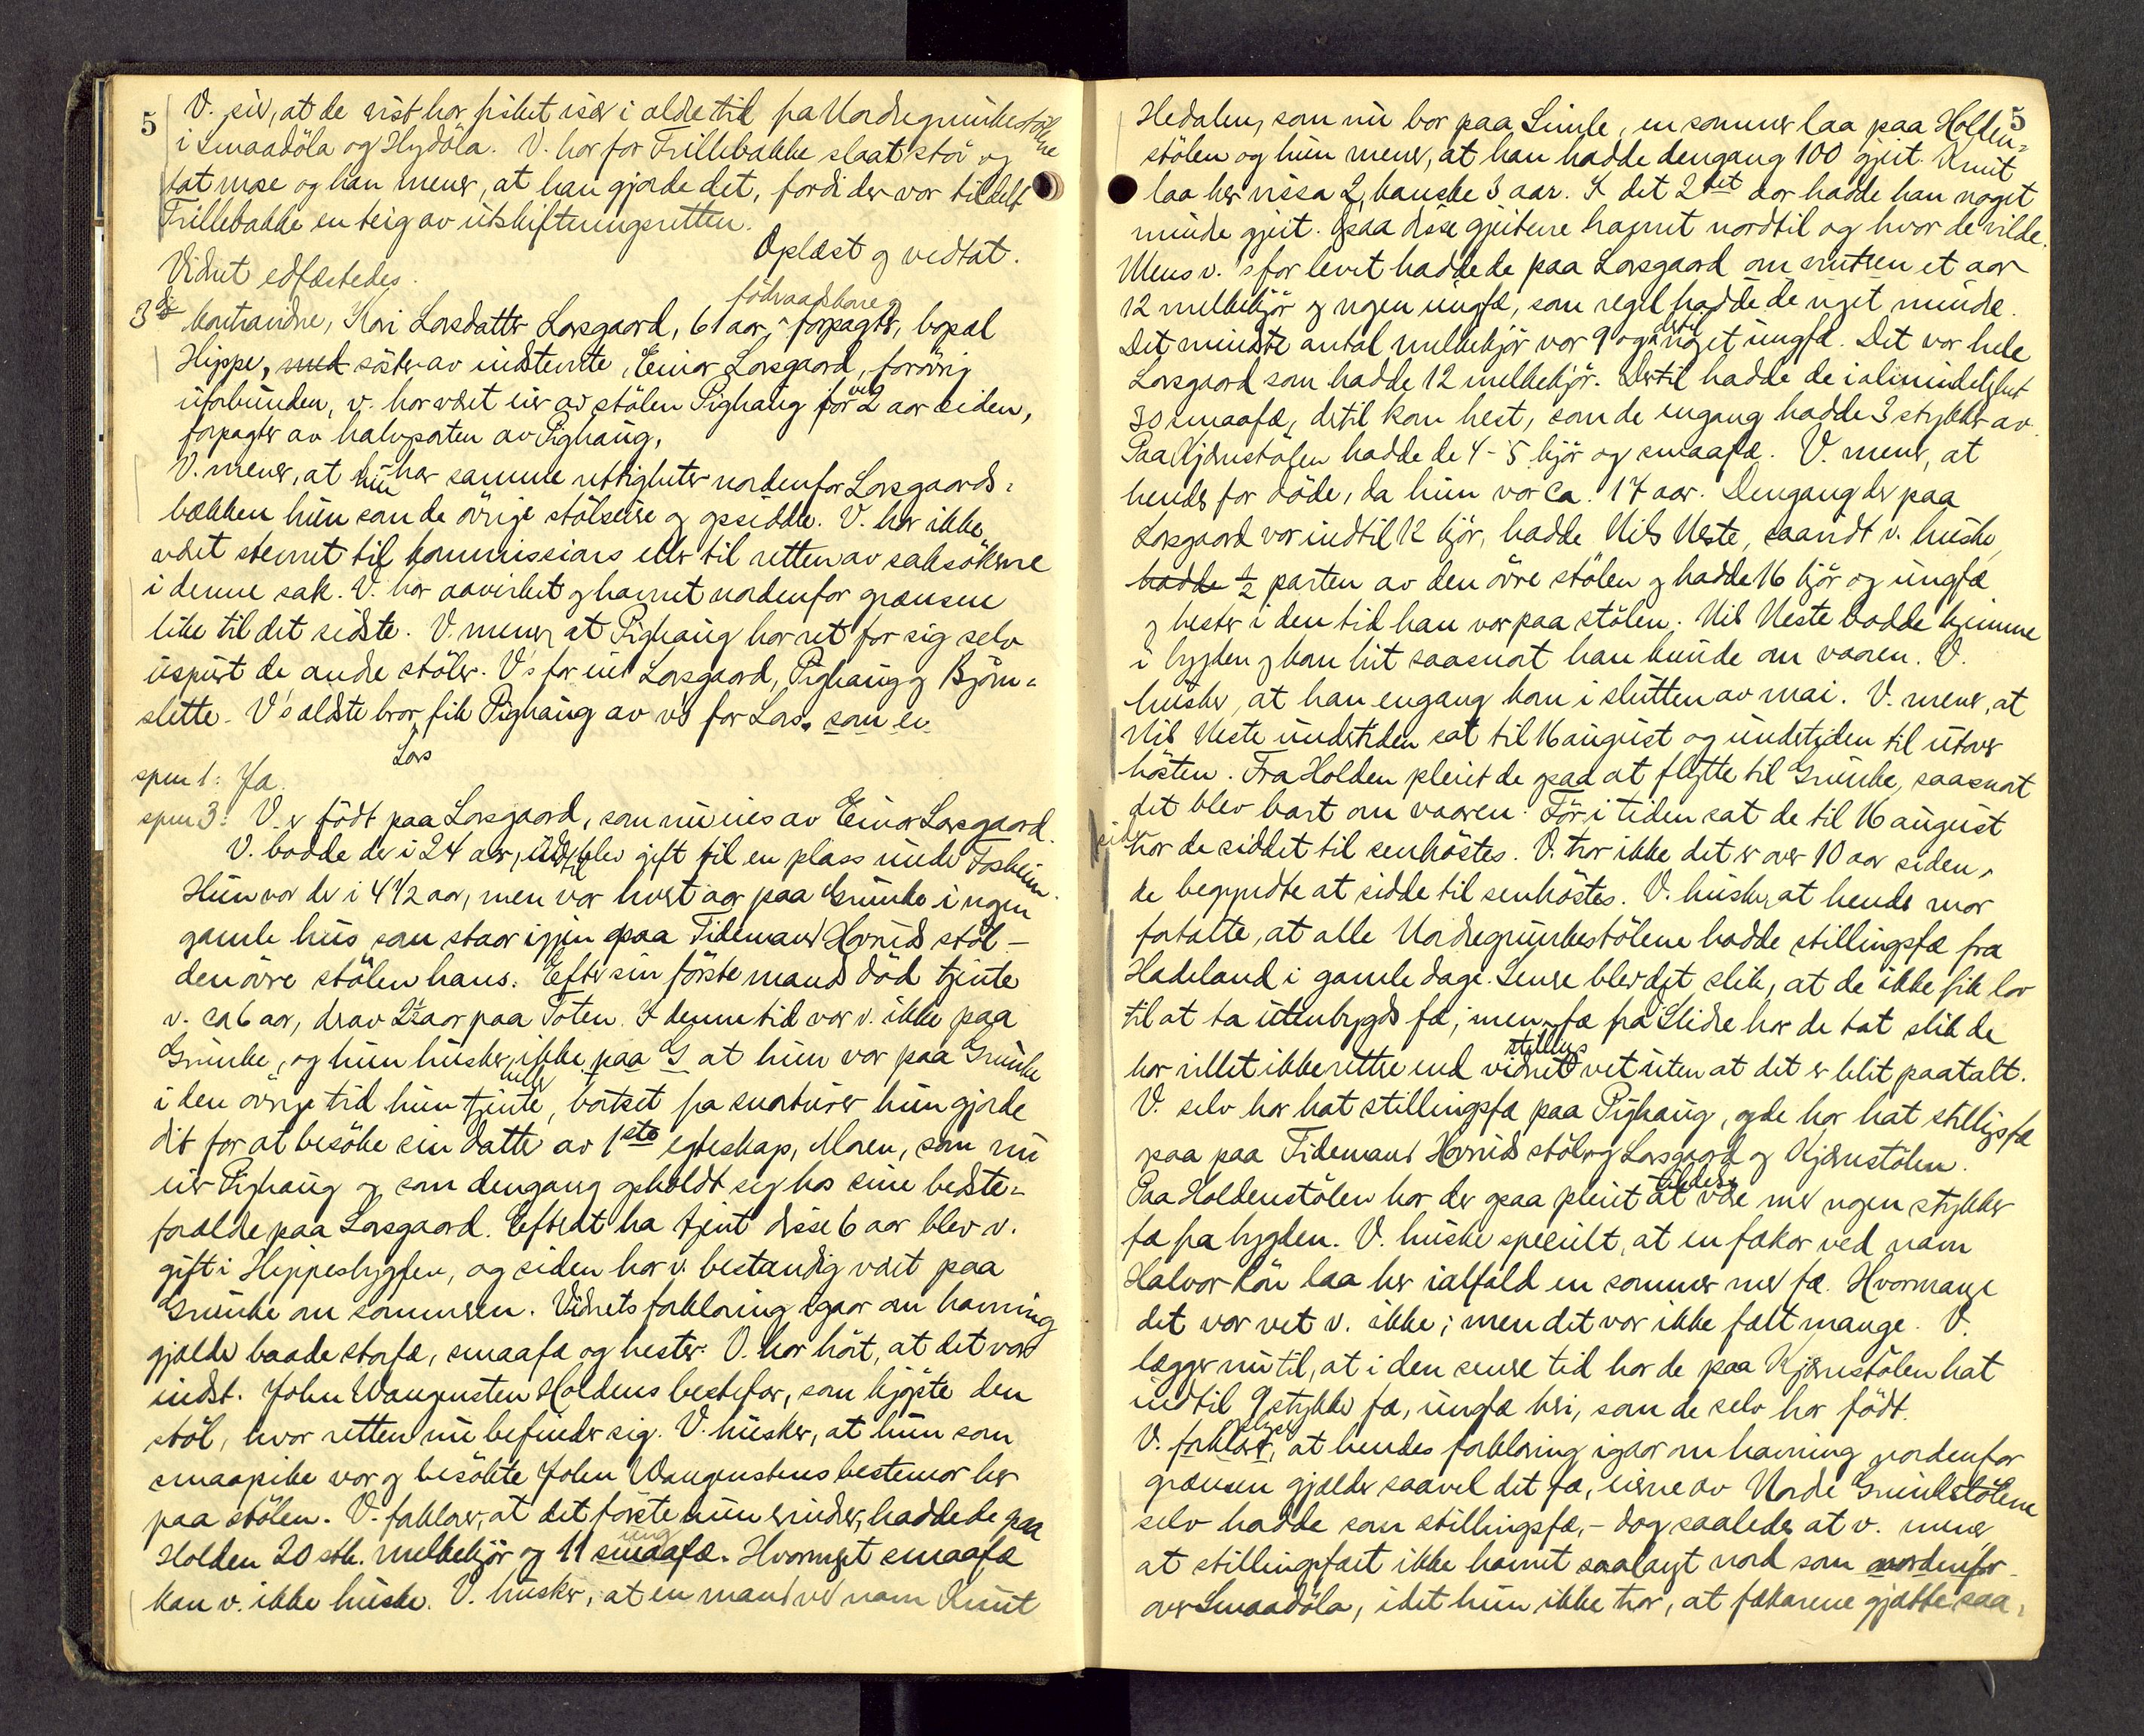 5
V. sier, at de vist har fisket især i ældre tid fra Nordregrunkestölene
i Smaadöla og Hydöla. V. har for Trillebakke slaat stör og
tat mose og han mener, at han gjorde det, fordi der var tildelt
Trillebakke en teig av utskiftningsretten.
Oplæst og vedtat.
Vidnet edfæstedes.
föderaadskone og
3die kontrandre, Kari Larsdatter Larsgaard, 61 aar, forpagter, bopæl
Hippe, med söster av indstevnte, Einar Larsgaard, forövrig
uforbunden, v. har været eier av stölen Pighaug for ved 2 aar siden,
forpagter av halvparten av Pighaug,
V. mener, at hun har samme rettigheter nordenfor Larsgaards-
bækken hun som de övrige stölseiere og opsiddere. V. har ikke
været stevnet til kommissions eller til retten av saksökerne
i denne sak. V. har aavirket og havnet nordenfor grænsen
like til det sidste. V. mener at Pighaug har ret for sig selv
uspurt de andre stöler. V's far eiet Larsgaard, Pighaug og Björn-
slette. V's ældste bror fik Pighaug av v's far Lars. som er
Lars
spm 1: Ja.
spm 3: V. er födt paa Larsgaard, som nu eies av Einar Larsgaard.
V. bodde der i 24 aar, indtil blev gift til en plass under Fosheim.
Hun var der i 4 1/2 aar, men var hvert aar paa Grunke i nogen
gamle hus som staar igjen paa Tidemand Hovrids stöl –
den övre stölen hans. Efter sin förste mands död tjente
v. ca 6 aar, derav 2 1/2 aar paa Toten. I denne tid var v. ikke paa
Grunke, og hun husker ikke paa G at hun var paa Grunke
heller
i den övrige tid hun tjente, bortset fra snarturer hun gjorde
dit for at besöke sin datter av 1ste egteskap, Maren, som nu
eier Pighaug og som dengang opholdt seg hos sine bedste-
forældre paa Larsgaard. Efter at ha tjent disse 6 aar blev v.
gift i Hippesbygden, og siden har v. bestandig været paa
Grunke om sommeren. Vidnets forklaring igaar om havning
gjælder baade storfæ, smaafæ og hester. V. har hört, at det var
indst. John Wangensten Holdens bestefar, som kjöpte den
stöl, hvor retten nu befinder sig. V. husker, at hun som
smaapike var og besökte John Wangenstens bestemor her
paa stölen. V. forklarer, at det förste hun erindrer, hadde de paa
ung
Holden 20 stk. melkekjör og 11 smaafæ. Hvormeget smaafæ
kan v. ikke huske. V. husker, at en mand ved navn Knut
5
Hedalen, som nu bor paa Limle, en sommer laa paa Holden-
stölen og hun mener, at han hadde dengang 100 gjeit. Knut
laa her vissa 2, kanske 3 aar. I det 2det aar hadde han noget
mindre gjeit. Ogsaa disse gjeitene havnet nordtil og hvor de vilde.
Mens v.'s far levet hadde de paa Larsgaard om sommeren et aar
12 melkekjör og nogen ungfæ, som regel hadde de noget mindre.
dertil
Det mindste antal melkekjör var 9 og noget ungfæ. Det var hele
Larsgaard som hadde 12 melkekjör. Dertil hadde de i alminnelighet
30 smaafæ, dertil kom hest, som de engang hadde 3 stykker av.
Paa Kjærnstölen hadde de 4 - 5 kjör og smaafæ. V. mener, at
hendes far döde, da hun var ca. 17 aar. Dengang der paa
Larsgaard var indtil 12 kjör, hadde Nils Neste, saavidt v. husker
hadde 1/2 parten av den övre stölen og hadde 16 kjör og ungfæ
og hester i den tid han var paa stölen. Nils Neste bodde hjemme
i bygden og kom hit saasnart han kunde om vaaren. V.
husker, at han engang kom i slutten av mai. V. mener, at
Nils Neste undertiden sat til 16 august og undertiden til utover
hösten. Fra Holden pleiet de ogsaa at flytte til Grunke, saasnart
det blev bart om vaaren.För i tiden sat de til 16 august
siden har de siddet til senhöstes. V. tror ikke det er over 10 aar siden,
de begyndte at sidde til senhöstes. V. husker at hendes mor
fortalte, at alle Nordregrunkestölene hadde stillingsfæ fra
Hadeland i gamle dage. Senere blev det slik, at de ikke fik lov
til at ta utenbygds fæ; men fæ fra Slidre har de tat slik de
stillings
har villet ikke rettere end vidnet vet uten at det er blit paatalt.
V. selv har hat stillingsfæ paa Pighaug, og de har hat stillingsfæ
ogsaa paa Tidemand Hovrids stöl og Larsgaard og Kjærnstölen.
Paa Holdenstölen har der ogsaa pleiet at være med nogen stykker
fæ fra bygden. V. husker specielt, at en fækar ved navn
Halvor Kön laa her ialfald en sommer med fæ. Hvormange
det var vet v. ikke; men det var ikke fælt mange. V.
lægger nu til, at i den senere tid har de paa Kjærnstölen hat
indtil 9 stykker fæ, ungfæ heri, som de selv har födt.
V. forklarer, at hendes forklaring igaar om havning nordenfor
grænsen gjælder saavel det fæ, eierne av Nordre Grunkestölene
selv hadde som stillingsfæ, – dog saaledes at v. mener
at stillingsfæet ikke havnet saalangt nord som nordenfor
over Smaadöla, idet hun ikke tror, at fækarene gjætte saa-